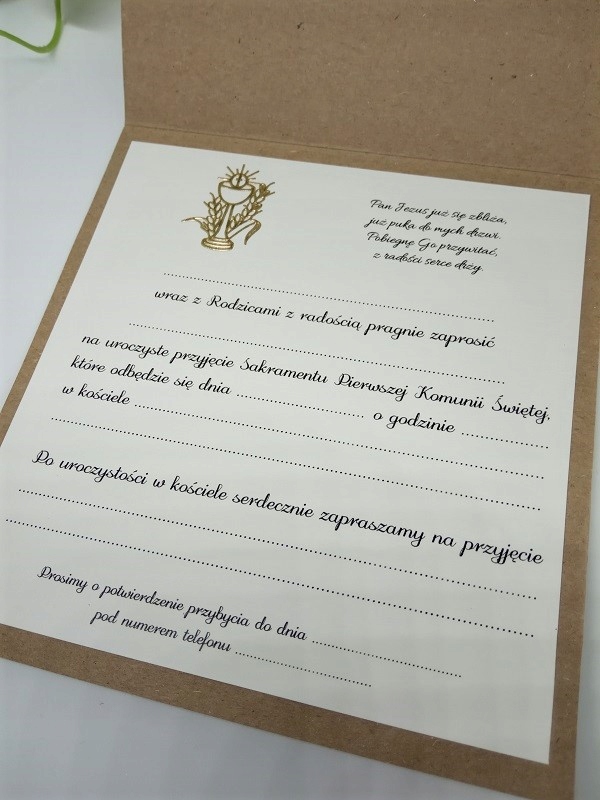 Pan Jezus już się zbliża,
już puka do mych drzwi.
Pobiegnę Go przywitać,
z radości serce drży.
wraz z Rodzicami z radością pragnie zaprosić
na uroczyste przyjęcie Sakramentu Pierwszej Komunii Świętej,
które odbędzie się dnia ........................ o godzinie ................
w kościele ................................................................
Po uroczystości w kościele serdecznie zapraszamy na przyjęcie
Prosimy o potwierdzenie przybycia do dnia ..............................
pod numerem telefonu ..............................